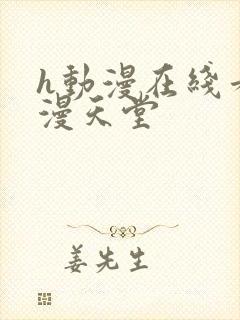 h動漫在綫
漫天堂
姜先生